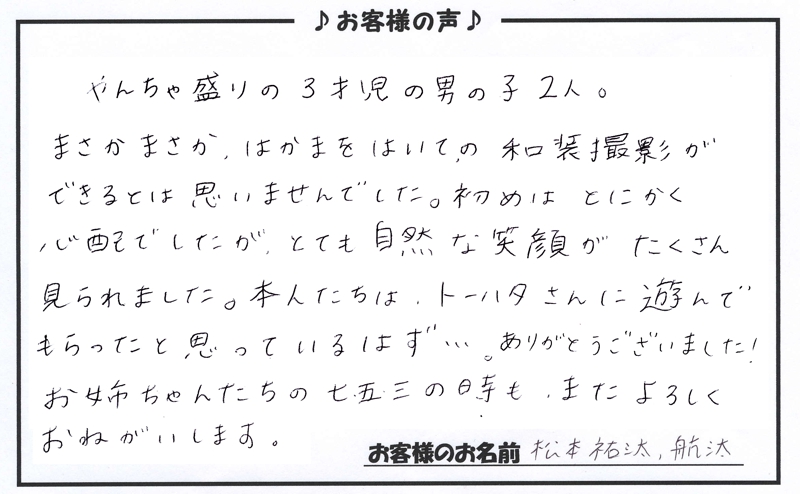 ♪お客様の声♪
やんちゃ盛りの3才児の男の子2人。
まさかまさか、はかまをはいての和装撮影が
できるとは思いませんでした。初めはとにかく
心配でしたが、とても自然な笑顔がたくさん
見られました。本人たちは、トーハタさんに遊んで
もらったと思っているはず…。ありがとうございました!
お姉ちゃんたちの七五三の時も、またよろしく
おねがいします。
お客様のお名前 松本祐汰、航汰